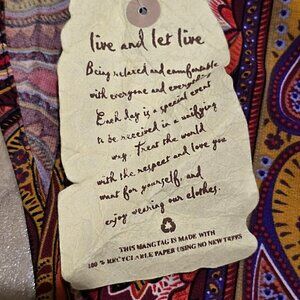 live and let live
Being relaxed and comfortable
with everyone and everything
Each day is a special event
to be received in a unifying
way. Treat the world
with the respect and love you
want for yourself, and
enjoy wearing our clothes.
THIS HANGTAG IS MADE WITH
100 % RECYCLABLE PAPER USING NO NEW TREES